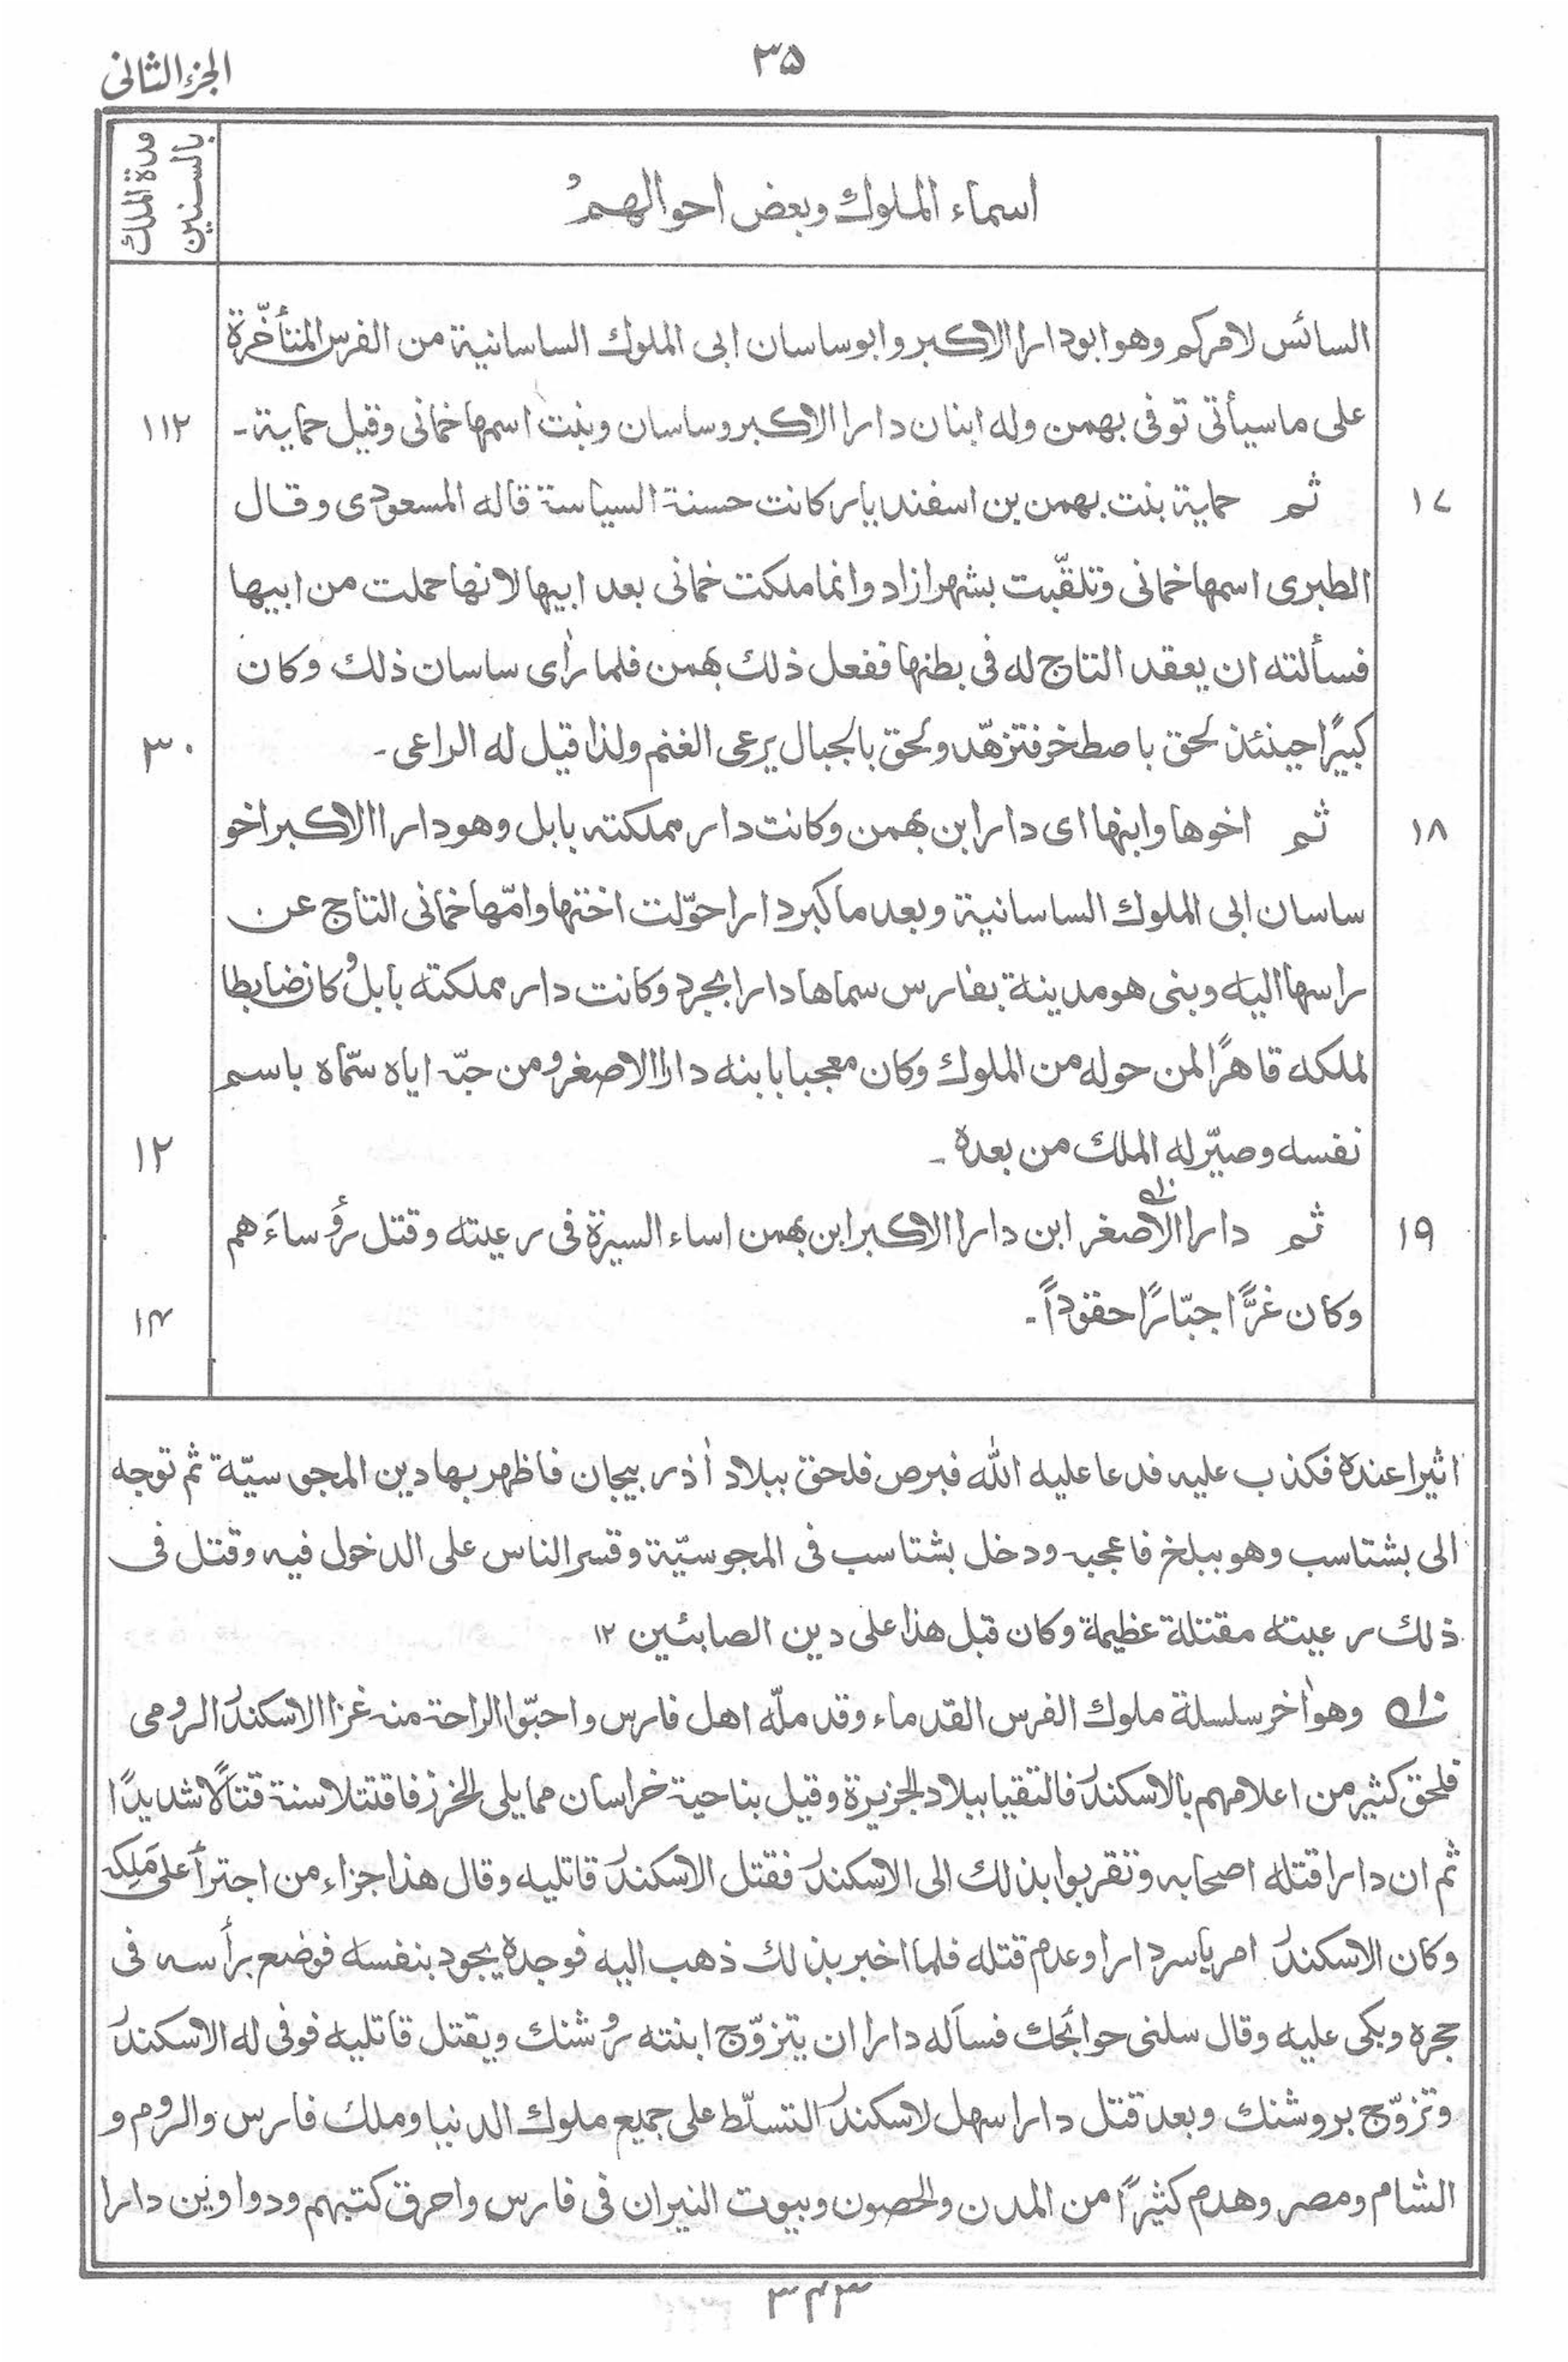 الجزء الثانى
۳۵
اسماء الملوك وبعض احوالهمْ
مدة الملك
بالسنين
السائس لامركم وهو ابو دارا الاكبر وابو ساسان ابى الملوك الساسانية من الفرس المتأخّرة
على ما سيأتى توفى بهمن وله ابنان دارا الاكبر وساسان وبنت اسمها خمانى وقيل حماية ۔ ۱۱۲
۱۷ ثم حماية بنت بهمن بن اسفنديار كانت حسنة السياسة قاله المسعودى وقال
الطبرى اسمها خمانى وتلقّبت بشهرازاد وانما ملكت خمانى بعد ابيها لانها حملت من ابيها
فسألته ان يعقد التاج له فى بطنها ففعل ذلك بهمن فلما راٰى ساسان ذلك وكان
كبيرًا حينئذ لحق باصطخر فتزهّد ولحق بالجبال يرعى الغنم ولذا قيل له الراعى ۔ ۳۰
۱۸ ثم اخوها وابنها اى دارا بن بهمن وكانت دار مملكته بابل وهو دارا الاكبر اخو
ساسان ابى الملوك الساسانية وبعد ما كبر دارا حوّلت اختها وامّها خمانى التاج عن
راسها اليه وبنى هو مدينة بفارس سماها دارابجرد وكانت دار مملكته بابل وكان ضابطا
لملكه قاهرًا لمن حوله من الملوك وكان معجبا بابنه دارا الاصغر ومن حبّه اياه سمّاه باسم
نفسه وصيّر له الملك من بعده ۔ ۱۲
۱۹ ثم دارا الاصغر ابن دارا الاكبر ابن بهمن اساء السيرة فى رعيته وقتل رُؤساءَهم
وكان غرًّا جبّارًا حقوداً ۔ ۱۴
اثيرا عنده فكذب عليه فدعا عليه الله فبرص فلحق ببلاد اٰذربيجان فاظهر بها دين المجوسيّة ثم توجه
الى بشتاسب وهو ببلخ فاعجبه ودخل بشتاسب فى المجوسيّة وقسر الناس على الدخول فيه وقتل فى
ذلك رعيته مقتلة عظيمة وكان قبل هذا على دين الصابئين ۱۲
وهو اٰخر سلسلة ملوك الفرس القدماء وقد ملّه اهل فارس واحبّوا الراحة منه غزا الاسكندر الرومى
فلحق كثير من اعلامهم بالاسكندر فالتقيا ببلاد الجزيرة وقيل بناحية خراسان مما يلى الخرز فاقتتلا سنة قتالًا شديدًا
ثم ان دارا قتله اصحابه وتقربوا بذلك الى الاسكندر فقتل الاسكندر قاتليه وقال هذا جزاء من اجترأ على مَلِكه
وكان الاسكندر امر باسر دارا وعدم قتله فلما اخبر بذلك ذهب اليه فوجده يجود بنفسه فوضع برأسه فى
حجره وبكى عليه وقال سلنى حوائجك فسأله دارا ان يتزوّج ابنته رُوشنك ويقتل قاتليه فوفى له الاسكندر
وتزوّج بروشنك وبعد قتل دارا سهل لاسكندر التسلّط على جميع ملوك الدنيا وملك فارس والروم و
الشام ومصر وهدم كثيرًا من المدن والحصون وبيوت النيران فى فارس واحرق كتبهم ودواوين دارا
۳۴۳